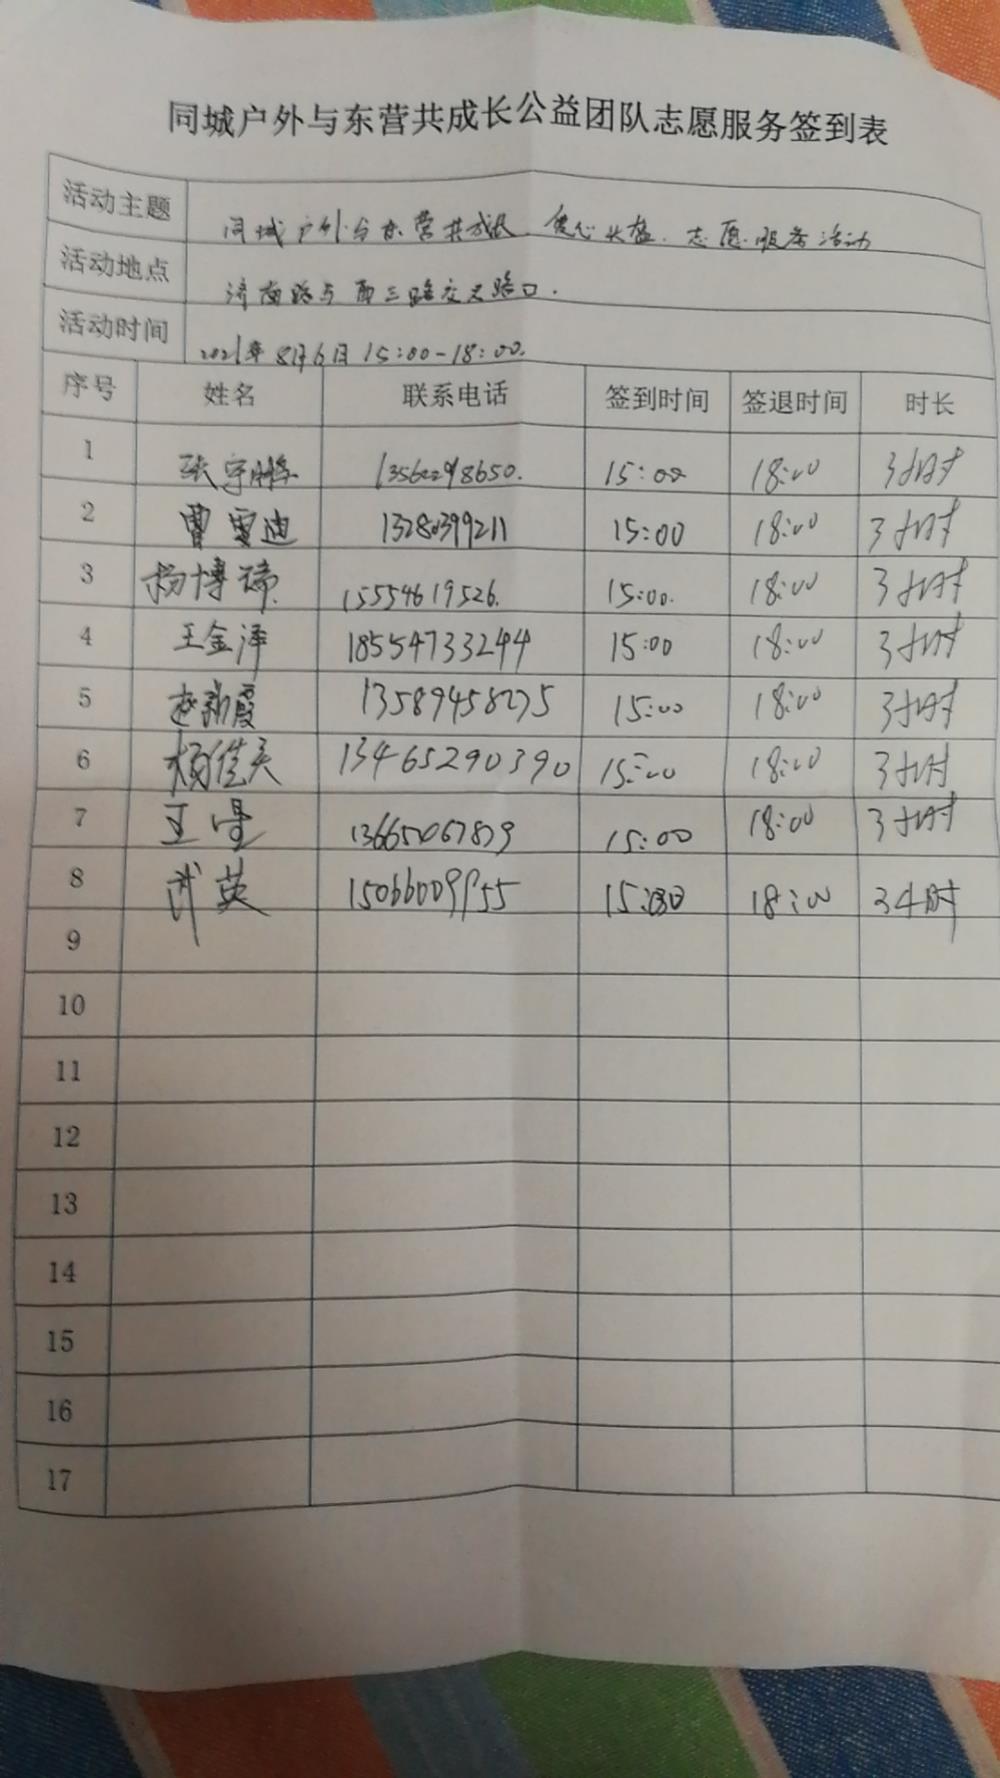 同城户外与东营共成长公益团队志愿服务签到表
活动主题 同城户外与东营共成长 志愿服务活动
活动地点 济南路与西三路交叉路口.
活动时间 2021年8月6日 15:00-18:00.
序号 姓名 联系电话 签到时间 签退时间 时长
1 张宇鹏 15:00 18:00 3小时
2 曹雪迪 13280399211 15:00 18:00 3小时
3 杨博 15554619526. 15:00. 18:00 3小时
4 王金泽 18554733244 15:00 18:00 3小时
5 赵新霞 13589458275 15:00 18:00 3小时
6 13465290390 15:00 18:00 3小时
7 王 15:00 18:00 3小时
8 武英 15066009955 15:00 18:00 3小时
9
10
11
12
13
14
15
16
17